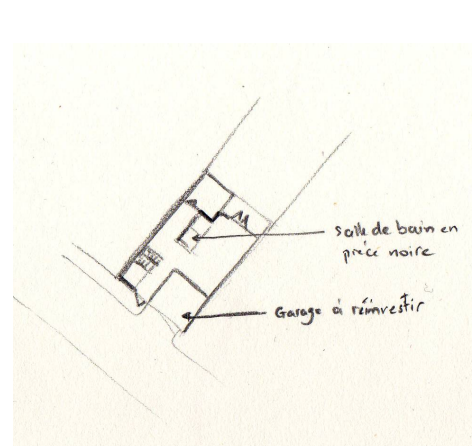 salle de bain en
pièce noire
Garage à réinvestir